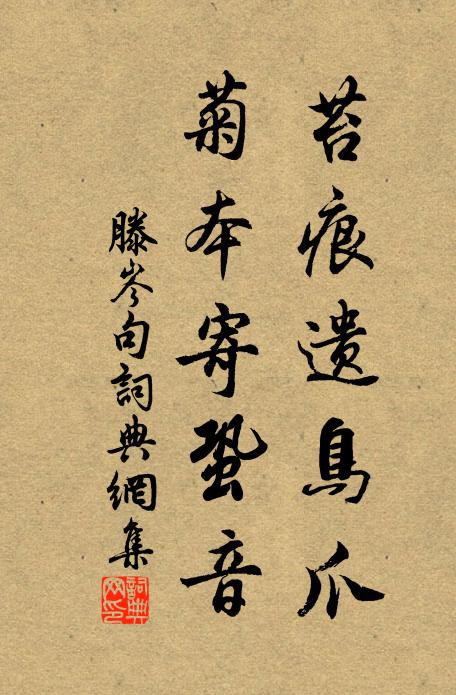 苔痕遺鳥爪
菊本寄蛩音
滕岑句詞典網集
詞典网印